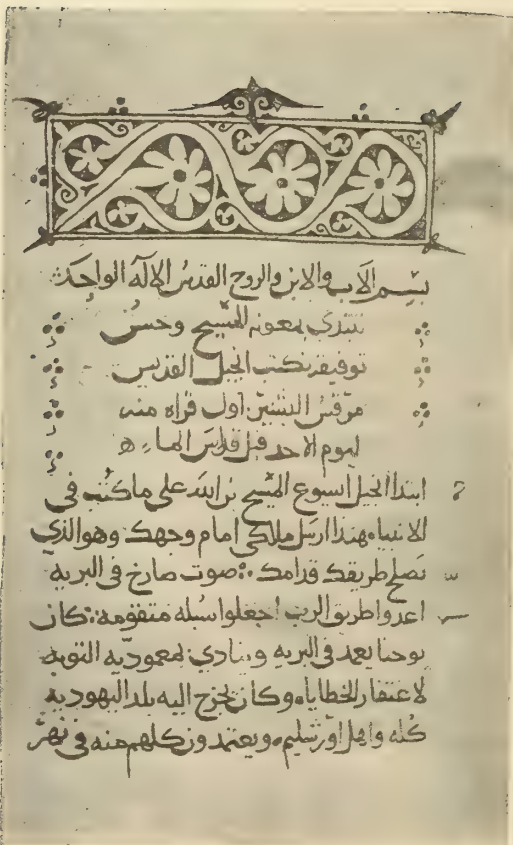 بسم الاب والابن والروح القدس الاله الواحد
نبتدي بمعونه المسيح وحسن
توفيقه نكتب انجيل القديس
مرقس البشير اول قراه منه
ليوم الاحد قبل قداس الماء
ابتدا انجيل يسوع المسيح بن الله على ما كتب في
الانبياء هندا ارسل ملاكي امام وجهك وهو الذي
تصلح طريقك قدامك صوت صارخ في البريه
اعدوا طريق الرب اجعلوا سبله متقومه كان
يوحنا يعمد في البريه وينادي بمعموديه التوبه
لاغتفار الخطايا وكان يخرج اليه بلد اليهوديه
كله واهل اورشليم ويعتمدون كلهم منه في نهر